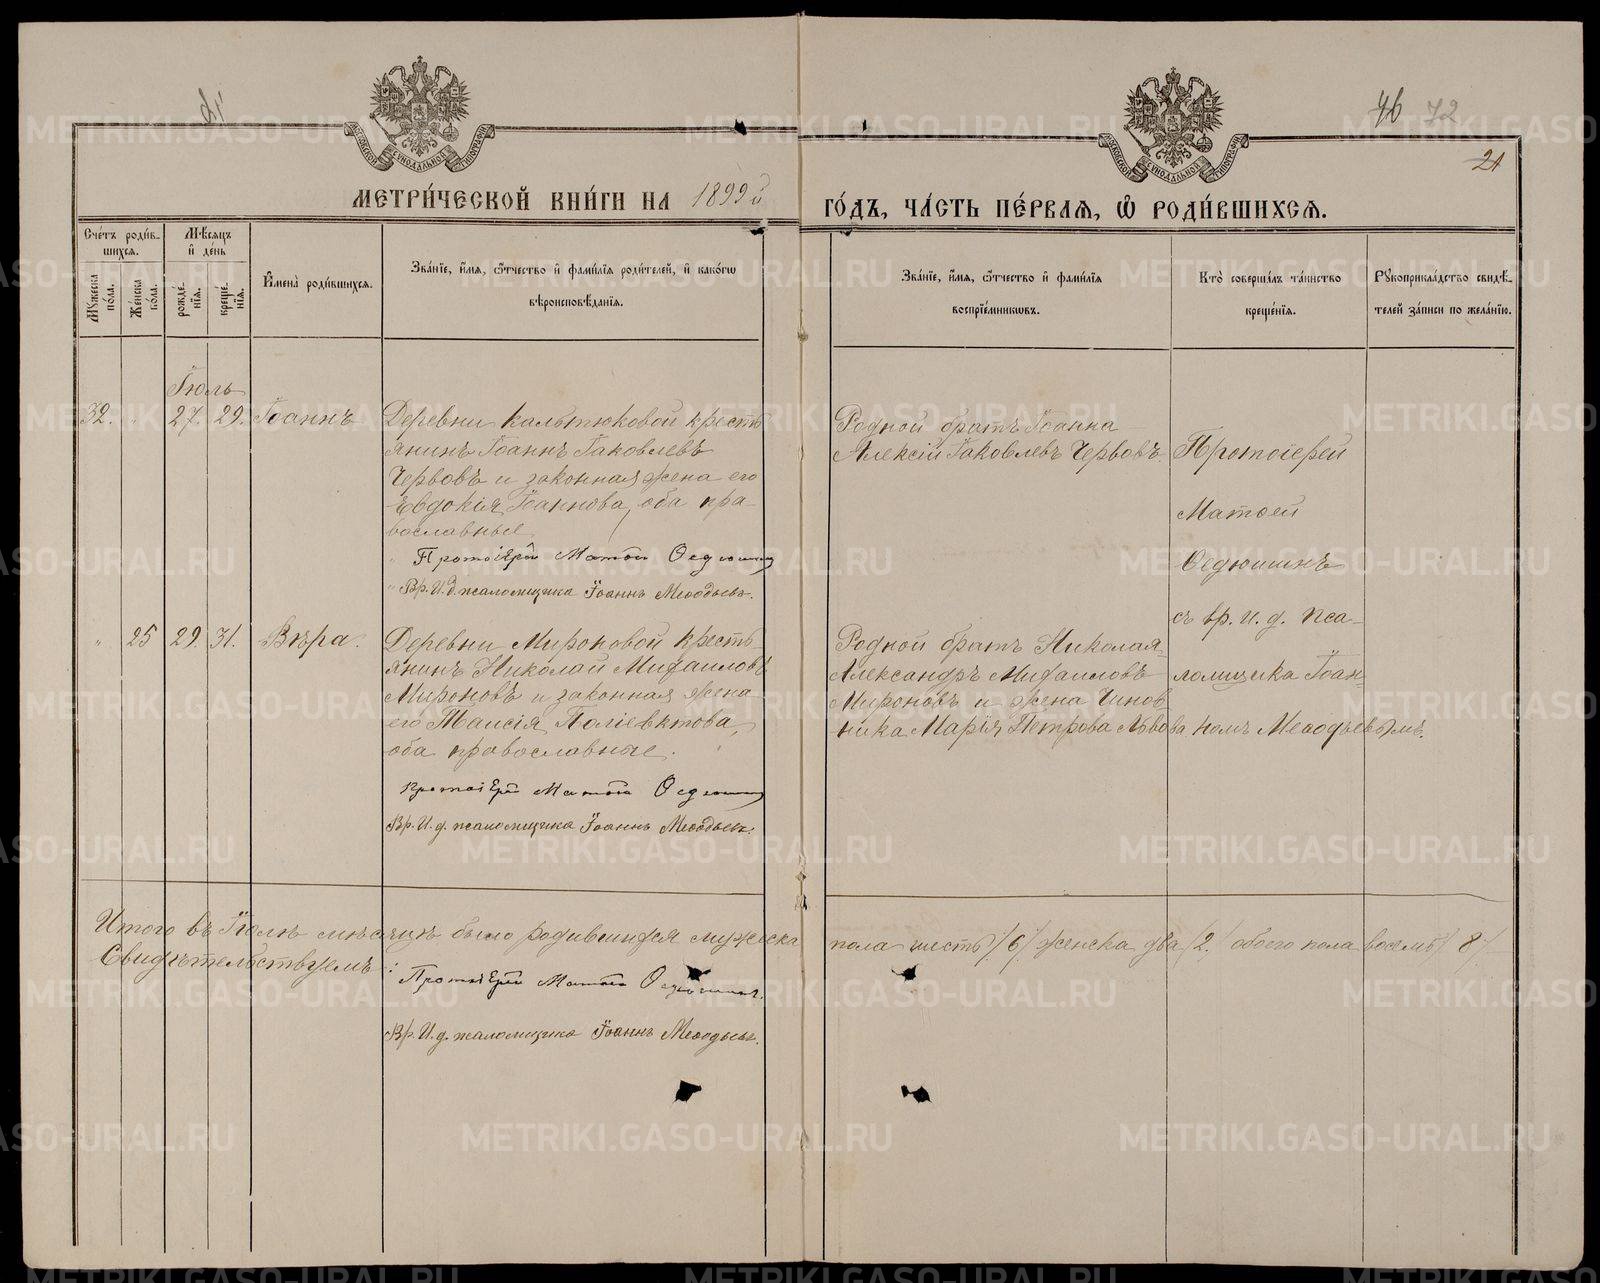 46 72
21
МОСКОВСКОЙ СУНОДАЛЬНОЙ ТИПОГРАФІИ
МОСКОВСКОЙ СУНОДАЛЬНОЙ ТИПОГРАФІИ
МЕТРИ́ЧЕСКОЙ КНИ́ГИ НА 1899й ГО́ДЪ, ЧА́СТЬ ПЕ́РВАЯ, Ѡ҆ РОДИ́ВШИХСЯ.
Сче́тъ роди́в-
шихся.
Мꙋжеска по́ла.
Же́нска по́ла.
Мѣ́сяцъ
и҆ де́нь
рожде́-
нїя.
креще́-
нїя.
И҆мена̀ роди́вшихся.
Зва́нїе, и҆́мя, ѻ҆́тчество и҆ фами́лїя роди́телей, и҆ како́гѡ
вѣроисповѣ́данїя.
Зва́нїе, и҆́мя, ѻ҆́тчество и҆ фами́лїя
воспрїе́мникѡвъ.
Кто̀ соверша́лъ та́инство
креще́нїя.
Рꙋкоприкла́дство свидѣ́-
телей за́писи по жела́нїю.
Іюль
32. " 27. 29. Іоаннъ
Деревни Кальтюковой кресть
янинъ Іоаннъ Іаковлевъ
Червовъ и законная жена его
Евдокія Іоаннова, оба пра-
вославные
" Протоіерей Матѳей Ѳедюшинъ
" Вр. И. д. псаломщика Іоаннъ Меѳодьевъ.
Родной братъ Іоанна
Алексій Іаковлевъ Червовъ.
Протоіерей
Матѳей
Ѳедюшинъ
съ вр. и. д. пса-
ломщика Іоан
номъ Меѳодьевымъ.
" 25 29. 31. Вѣра.
Деревни Мироновой кресть-
янинъ Николай Михаиловъ
Мироновъ и законная жена
его Таисія Поліевктова,
оба православные.
Протоіерей Матѳей Ѳедюшинъ
Вр. И. д. псаломщика Іоаннъ Меѳодьевъ.
Родной братъ Николая
Александръ Михаиловъ
Мироновъ и жена Чинов
ника Марія Петрова Львова
Итого въ Іюлѣ мѣсяцѣ было родившихся мужеска пола шесть /6/ женска два /2/ обоего пола восемь /8/
Свидѣтельствуемъ:
Протоіерей Матѳей Ѳедюшинъ.
Вр. И. д. псаломщика Іоаннъ Меѳодьевъ.
METRIKI.GASO-URAL.RU